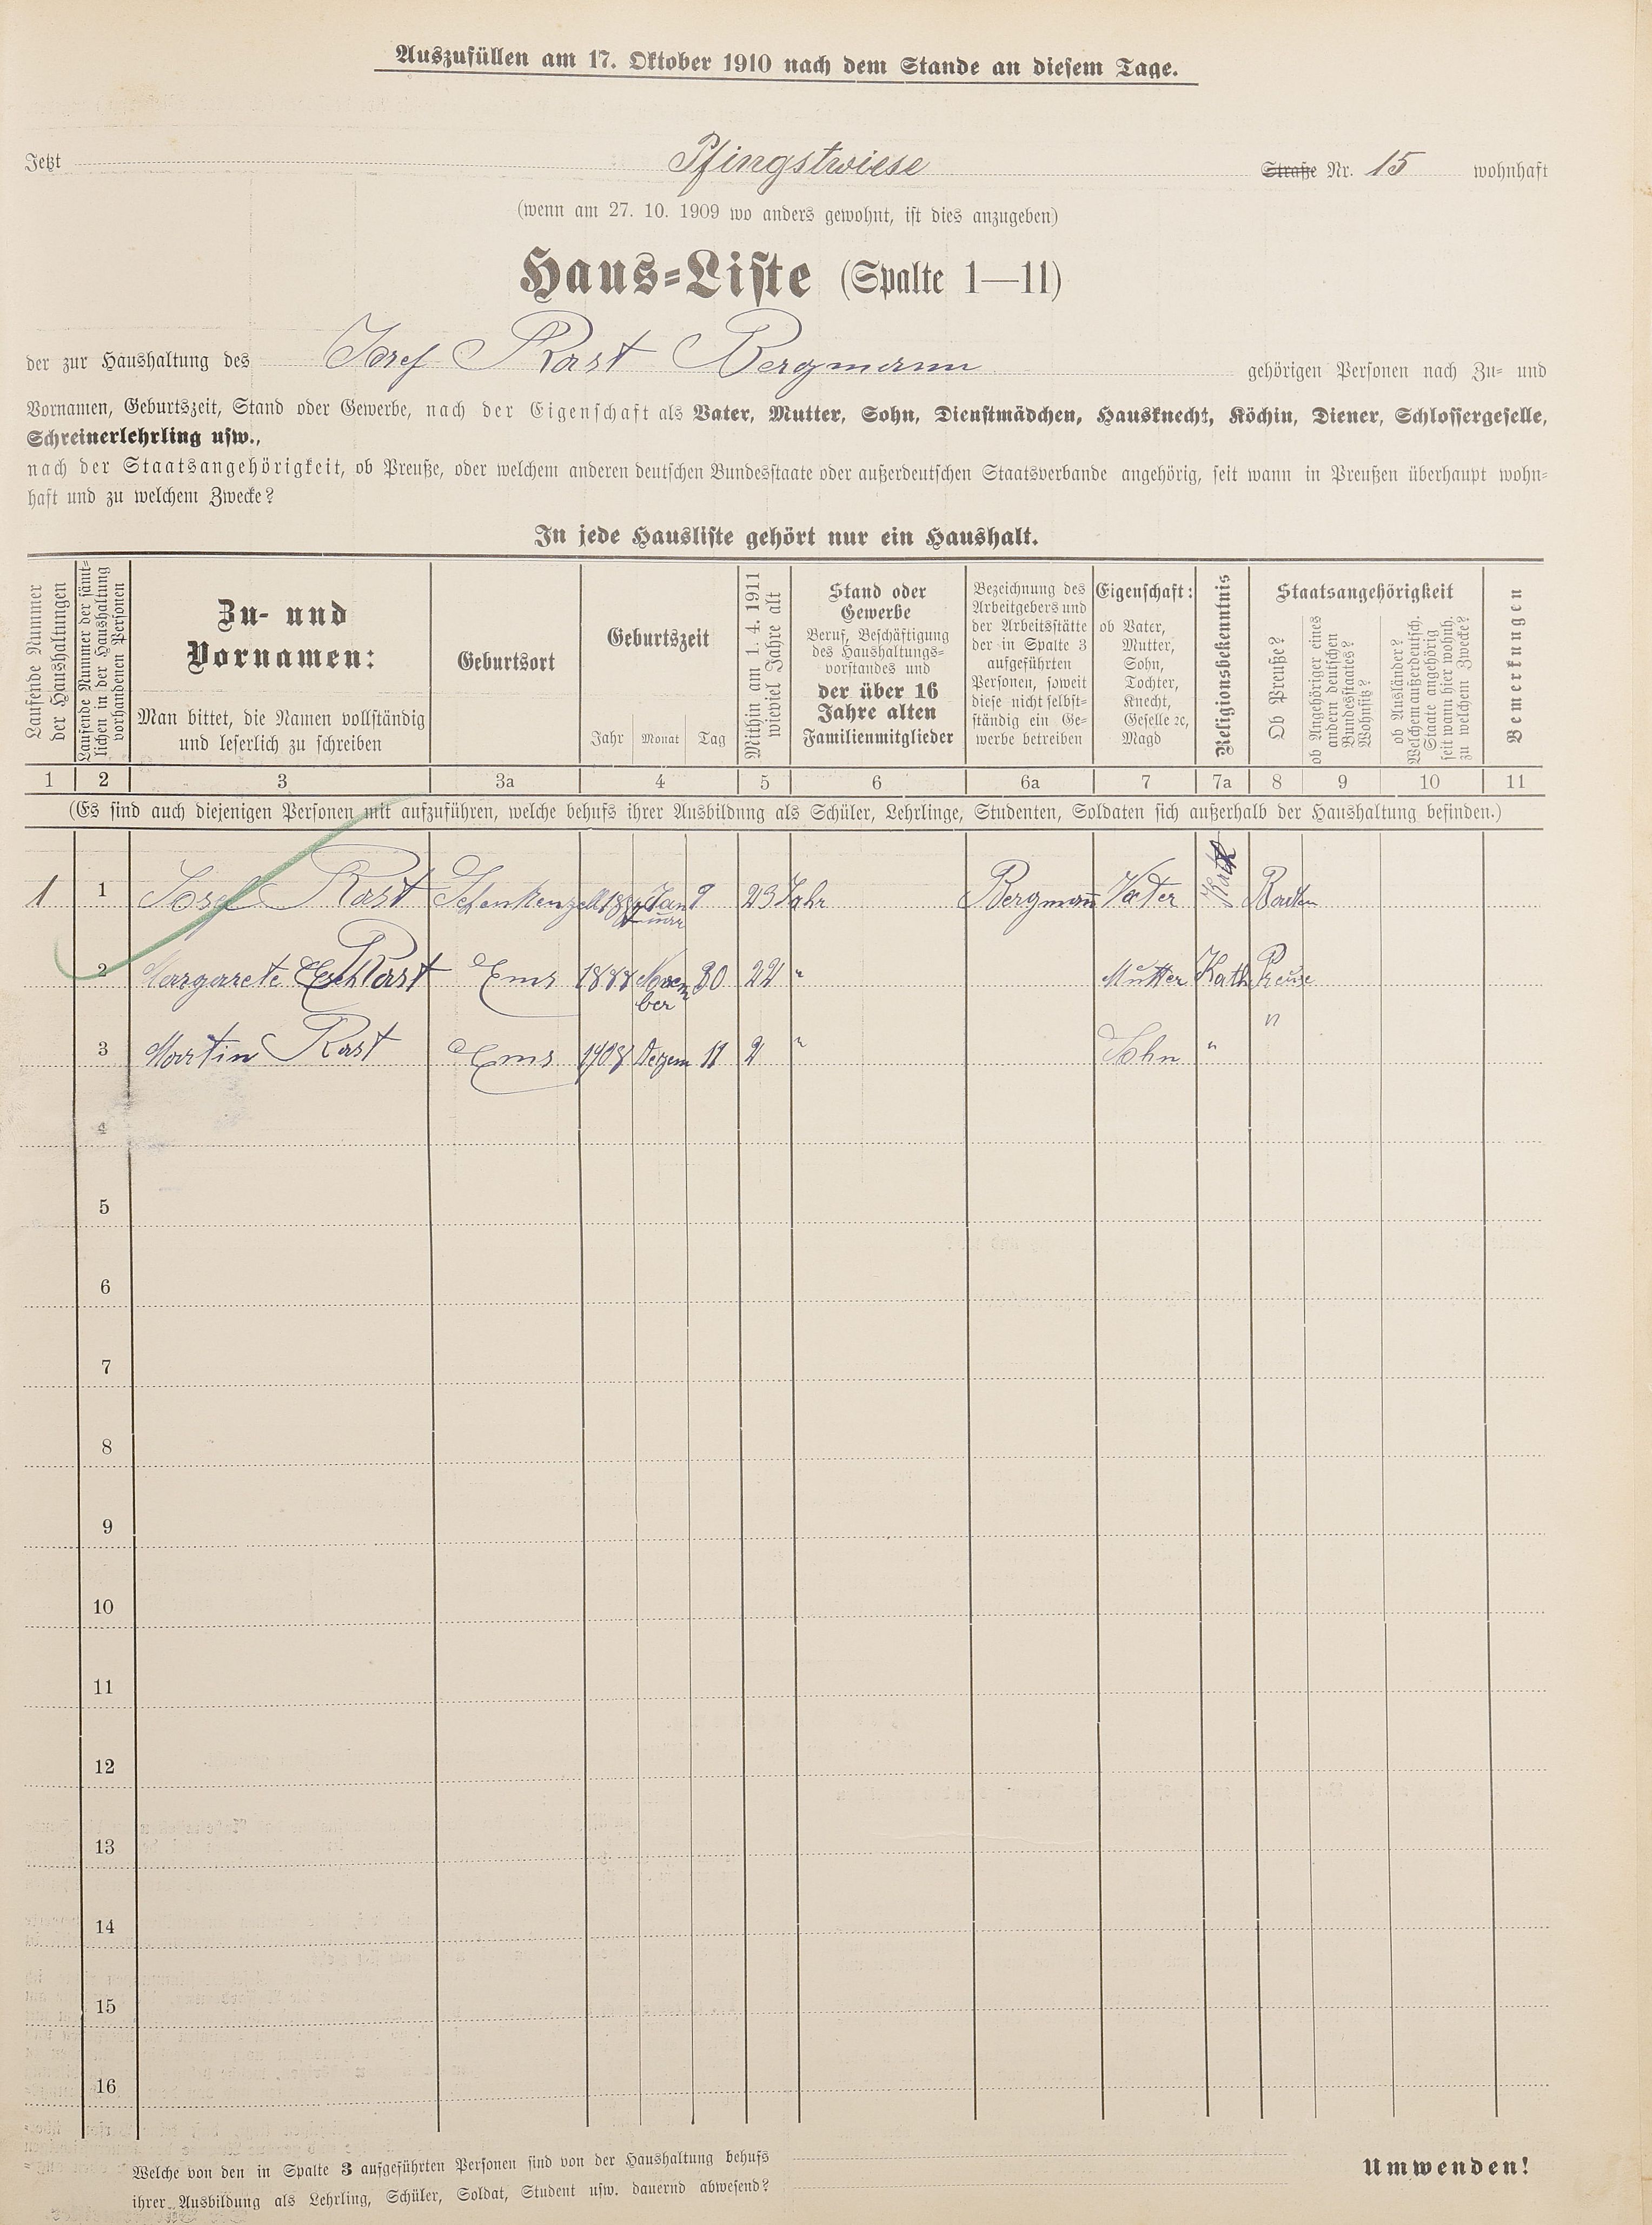 Auszufüllen am 17. Oktober 1910 nach dem Stande an diesem Tage.
Jetzt Pfingstwiese Straße Nr. 15 wohnhaft
(wenn am 27. 10. 1909 wo anders gewohnt, ist dies anzugeben)
Haus-Liste (Spalte 1—11)
der zur Haushaltung des Josef Rast Bergmann gehörigen Personen nach Zu- und
Vornamen, Geburtszeit, Stand oder Gewerbe, nach der Eigenschaft als Vater, Mutter, Sohn, Dienstmädchen, Hausknecht, Köchin, Diener, Schlossergeselle,
Schreinerlehrling usw.,
nach der Staatsangehörigkeit, ob Preuße, oder welchem anderen deutschen Bundesstaate oder außerdeutschen Staatsverbande angehörig, seit wann in Preußen überhaupt wohn-
haft und zu welchem Zwecke?
In jede Hausliste gehört nur ein Haushalt.
Laufende Nummer
der Haushaltungen
Laufende Nummer der sämt-
lichen in der Haushaltung
vorhandenen Personen
Zu- und
Vornamen:
Man bittet, die Namen vollständig
und leserlich zu schreiben
Geburtsort
Geburtszeit
Jahr Monat Tag
Mithin am 1. 4. 1911
wieviel Jahre alt
Stand oder
Gewerbe
Beruf, Beschäftigung
des Haushaltungs-
vorstandes und
der über 16
Jahre alten
Familienmitglieder
Bezeichnung des
Arbeitgebers und
der Arbeitsstätte
der in Spalte 3
aufgeführten
Personen, soweit
diese nicht selbst-
ständig ein Ge-
werbe betreiben
Eigenschaft:
ob Vater,
Mutter,
Sohn,
Tochter,
Knecht,
Geselle ec,
Magd
Religionsbekenntnis
Staatsangehörigkeit
Ob Preuße?
ob Angehöriger eines
andern deutschen
Bundesstaates?
Wohnsitz?
ob Ausländer?
Welchem außerdeutsch.
Staate angehörig
seit wann hier wohnh.
zu welchem Zwecke?
Bemerkungen
1 2 3 3a 4 5 6 6a 7 7a 8 9 10 11
(Es sind auch diejenigen Personen mit aufzuführen, welche behufs ihrer Ausbildung als Schüler, Lehrlinge, Studenten, Soldaten sich außerhalb der Haushaltung befinden.)
1 1 Josef Rast Schenkenzell Januar 9 23 Jahr Bergmann Vater Kath Baden
2 Margarete Rast Ems 1888 November 30 22 " Mutter Kath Preuse
3 Martin Rast Ems 1908 Dezem 11 2 " Sohn " "
4
5
6
7
8
9
10
11
12
13
14
15
16
Welche von den in Spalte 3 aufgeführten Personen sind von der Haushaltung behufs
ihrer Ausbildung als Lehrling, Schüler, Soldat, Student usw. dauernd abwesend?
Umwenden!